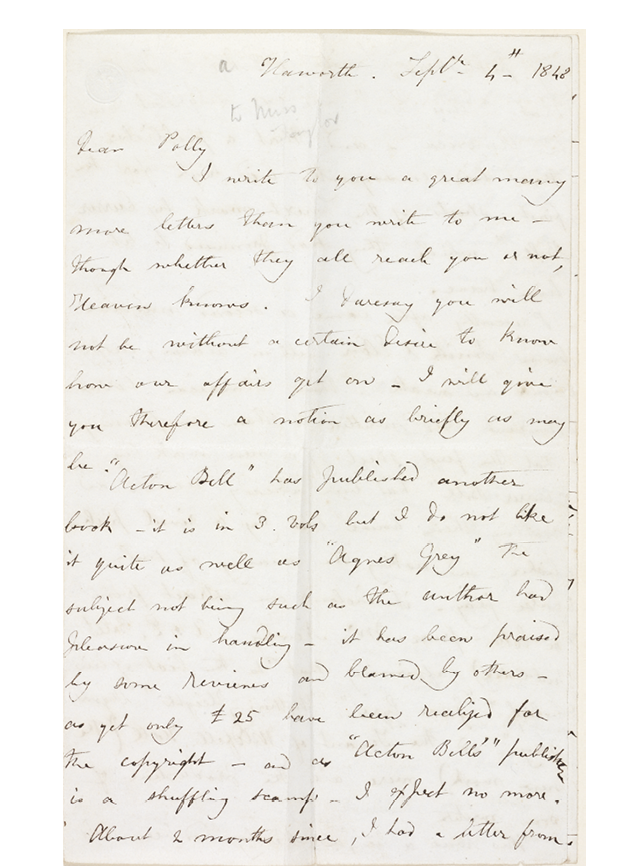 a
Haworth. Septbr 4th 1848
to Miss
Taylor
Dear Polly
I write to you a great many
more letters than you write to me –
though whether they all reach you or not,
Heaven knows. I daresay you will
not be without a certain desire to know
how our affairs get on – I will give
you therefore a notion as briefly as may
be. "Acton Bell" has published another
book – it is in 3. vols but I do not like
it quite as well as "Agnes Grey" the
subject not being such as the author had
pleasure in handling – it has been praised
by some reviews and blamed by others –
as yet only £25 have been realized for
the copyright – and as "Acton Bell's" publisher
is a shuffling scamp – I expect no more.
About 2 months since, I had a letter from